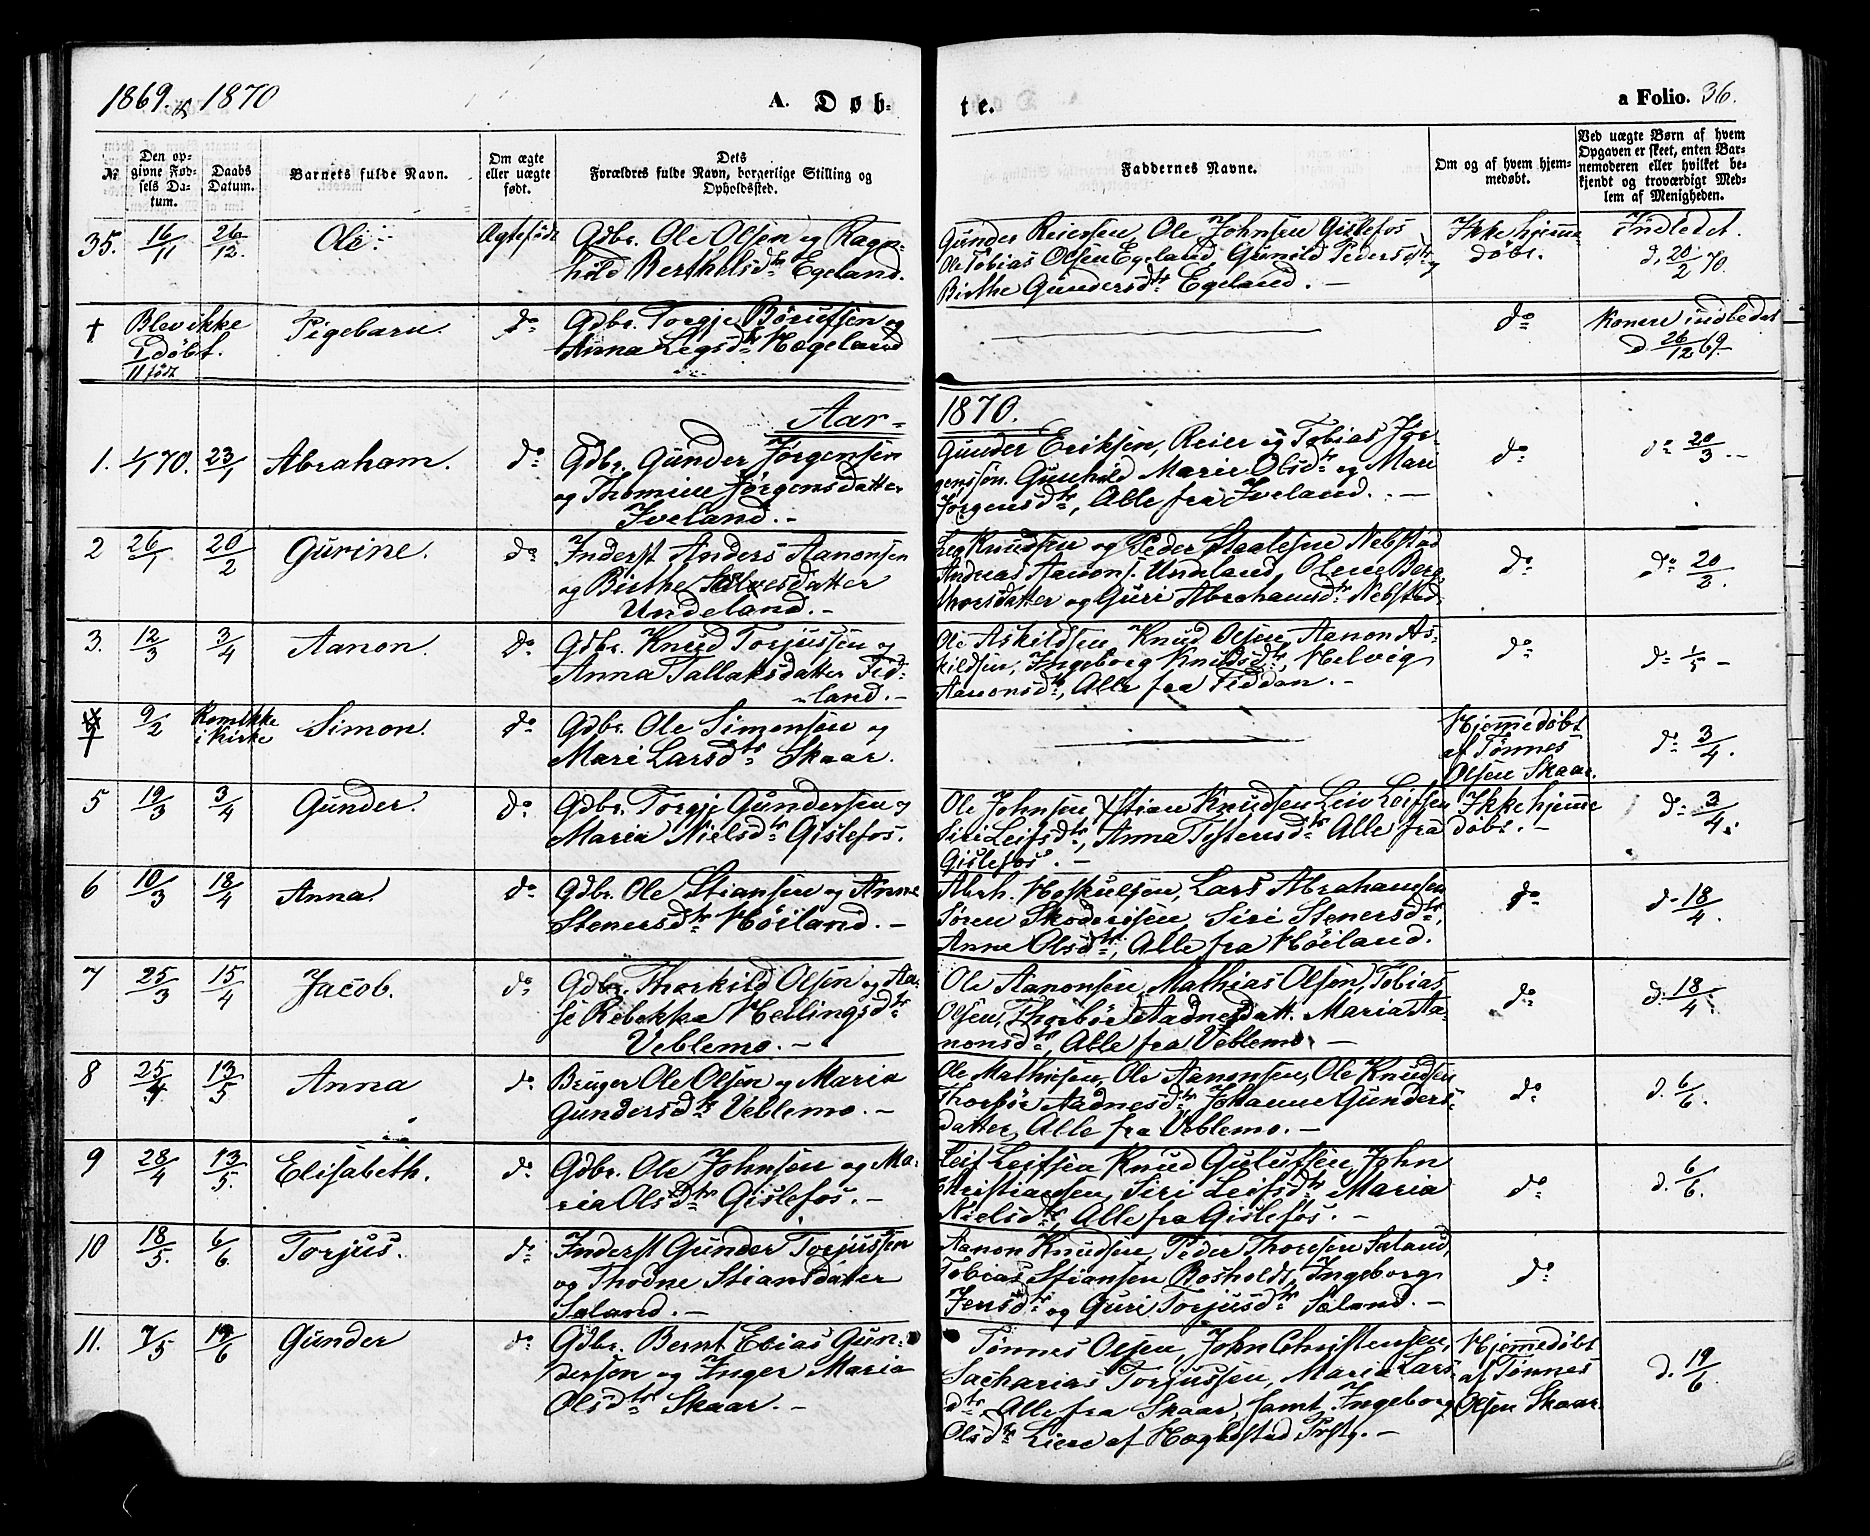 1869 & 1870
A. Døb-
te.
a Folio. 36.
№
Den op-
givne Fød-
sels Da-
tum.
Daabs
Datum.
Barnets fulde Navn.
Om ægte
eller uægte
født.
Dets
Forældres fulde Navn, borgerlige Stilling og
Opholdssted.
Faddernes Navne.
Om og af hvem hjem-
medøbt.
Ved uægte Børn af hvem
Opgaven er skeet, enten Bar-
nemoderen eller hvilket be-
kjendt og troværdigt Med-
lem af Menigheden.
35. 16/11 26/12. Ole. Ægtefødt
Gdbr. Ole Olsen og Ragn-
hild Berthelsdtr Egeland.
Gunder Reiersen, Ole Johnsen Gislefos
Ole Tobias Olsen Egeland, Gunild Pedersdtr og
Birthe Gundersdtr Egeland. —
Ikke hjemme
døbt.
Indledet.
d. 20/2 70.
† Blev ikke
døbt.
født
Pigebarn. do
Gdbr. Torgje Børufsen og
Anna Legsdtr Hægeland
do
Konen indledet
d 26/12 69.
Aar-
1870.
1. 1/1 70. 23/1 Abraham. do
Gdbr. Gunder Jørgensen
og Thomine Jørgensdatter
Iveland. —
Gunder Eriksen, Reier og Tobias Jør-
genssøn. Gunhild Marie Olsdtr og Mari
Jørgensdtr, Alle fra Iveland. —
do
do 20/3. —
2 26/1 20/2 Gurine. do
Inderst Anders Aanonsen
og Birthe Salvesdatter
Undeland. —
Leg Knudsen og Peder Staalesen Nebstad
Andreas Aanons. Undeland, Olene Berg
thorsdatter og Guri Abrahamsdtr Nebstad
do
do 20/3.
3. 12/3 3/4 Aanon. do
Gdbr. Knud Torjussen og
Anna Tallaksdatter Fid-
land. —
Ole Askildsen, Knud Olsen, Aanon As-
kildsen, Ingeborg Knudsdtr, Helvig
Aanonsdtr, Alle fra Fiddan. —
do
do 1/5 —
4 † 9/2 Kom ikke
i Kirke
Simon. do
Gdbr. Ole Simonsen og
Mari Larsdtr Skaar.
Hjemmedøbt
af Tønnes
Olsen Skaar.
do 3/4.
5 19/3 3/4 Gunder. do
Gdbr. Torgje Gundersen og
Maria Nielsdtr Gislefos.
Ole Johnsen, Stian Knudsen Leiv Leifsen
Siri Leifsdtr, Anna Tostensdtr Alle fra
Gislefos. —
Ikke hjemme
døbt. —
do 3/4.
6 10/3 18/4 Anna. do
Gdbr. Ole Stiansen og Anne
Stenersdtr Høiland. —
Abrh. Hoskulsen, Lars Abrahamsen
Søren Skoderisen, Siri Stenersdtr,
Anne Olsdtr, Alle fra Høiland.
do
do 18/4.
7 25/3 15/4 Jacob. do
Gdbr. Thorkild Olsen og Aa-
se Rebekka Hellingsdtr
Veblemo. —
Ole Aanonsen, Mathias Olsen, Tobias
Olsen, Thorbor Aadnesdatt. Maria Aa-
nonsdtr, Alle fra Veblemo —
do
do 18/4.
8 25/4. 13/5 Anna do
Bruger Ole Olsen og Maria
Gundersdtr Veblemo. —
Ole Mathiesen, Ole Aanonsen, Ole Knudsen
Thorbor Aadnesdtr, Johanne Gunders-
datter, Alle fra Veblemo. —
do
d. 6/6.
9 28/4 13/5. Elisabeth. do
Gdbr. Ole Johnsen og Ma-
ria Olsdtr Gislefos. —
Leif Leifsen Knud Gulufsen, John
Christiansen, Siri Leifsdtr, Maria
Nielsdtr, Alle fra Gislefos. —
do
d. 6/6.
10 18/5. 6/6. Torjus. do
Inderst Gunder Torjussen
og Thodne Stiansdatter
Saland. —
Aanon Knudsen, Peder Thoresen Saland,
Tobias Stiansen Rosholdt, Ingeborg
Jensdtr og Guri Torjusdtr Saland. —
do
11. 7/5 19/6 Gunder do
Gdbr. Bernt Elias Gun-
derson og Inger Maria
Olsdtr Skaar. —
Tønnes Olsen, John Christensen,
Sacharias Torjussen, Maria Lars-
dtr, Alle fra Skaar, samt Ingeborg
Olsdtr Liene af Hægebostad Prstg. —
Hjemmedøbt
af Tønnes
Olsen Skaar.
d. 19/6.